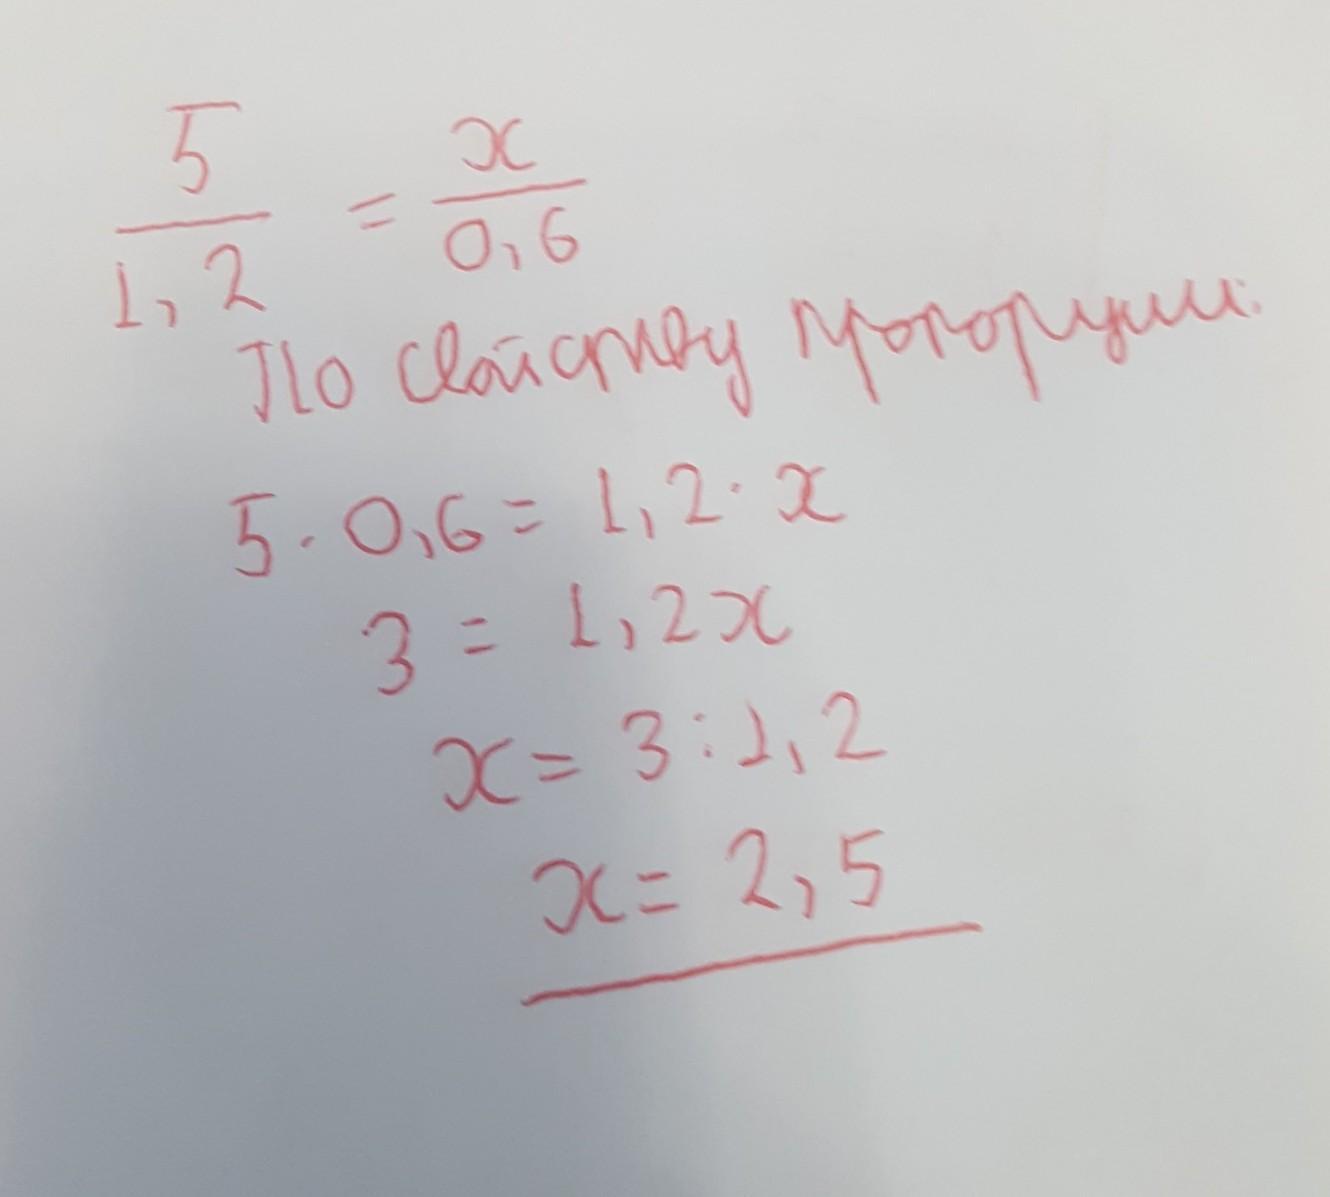 5/1,2 = x/0,6
По свойству пропорции:
5 · 0,6 = 1,2 · x
3 = 1,2x
x = 3 : 1,2
x = 2,5